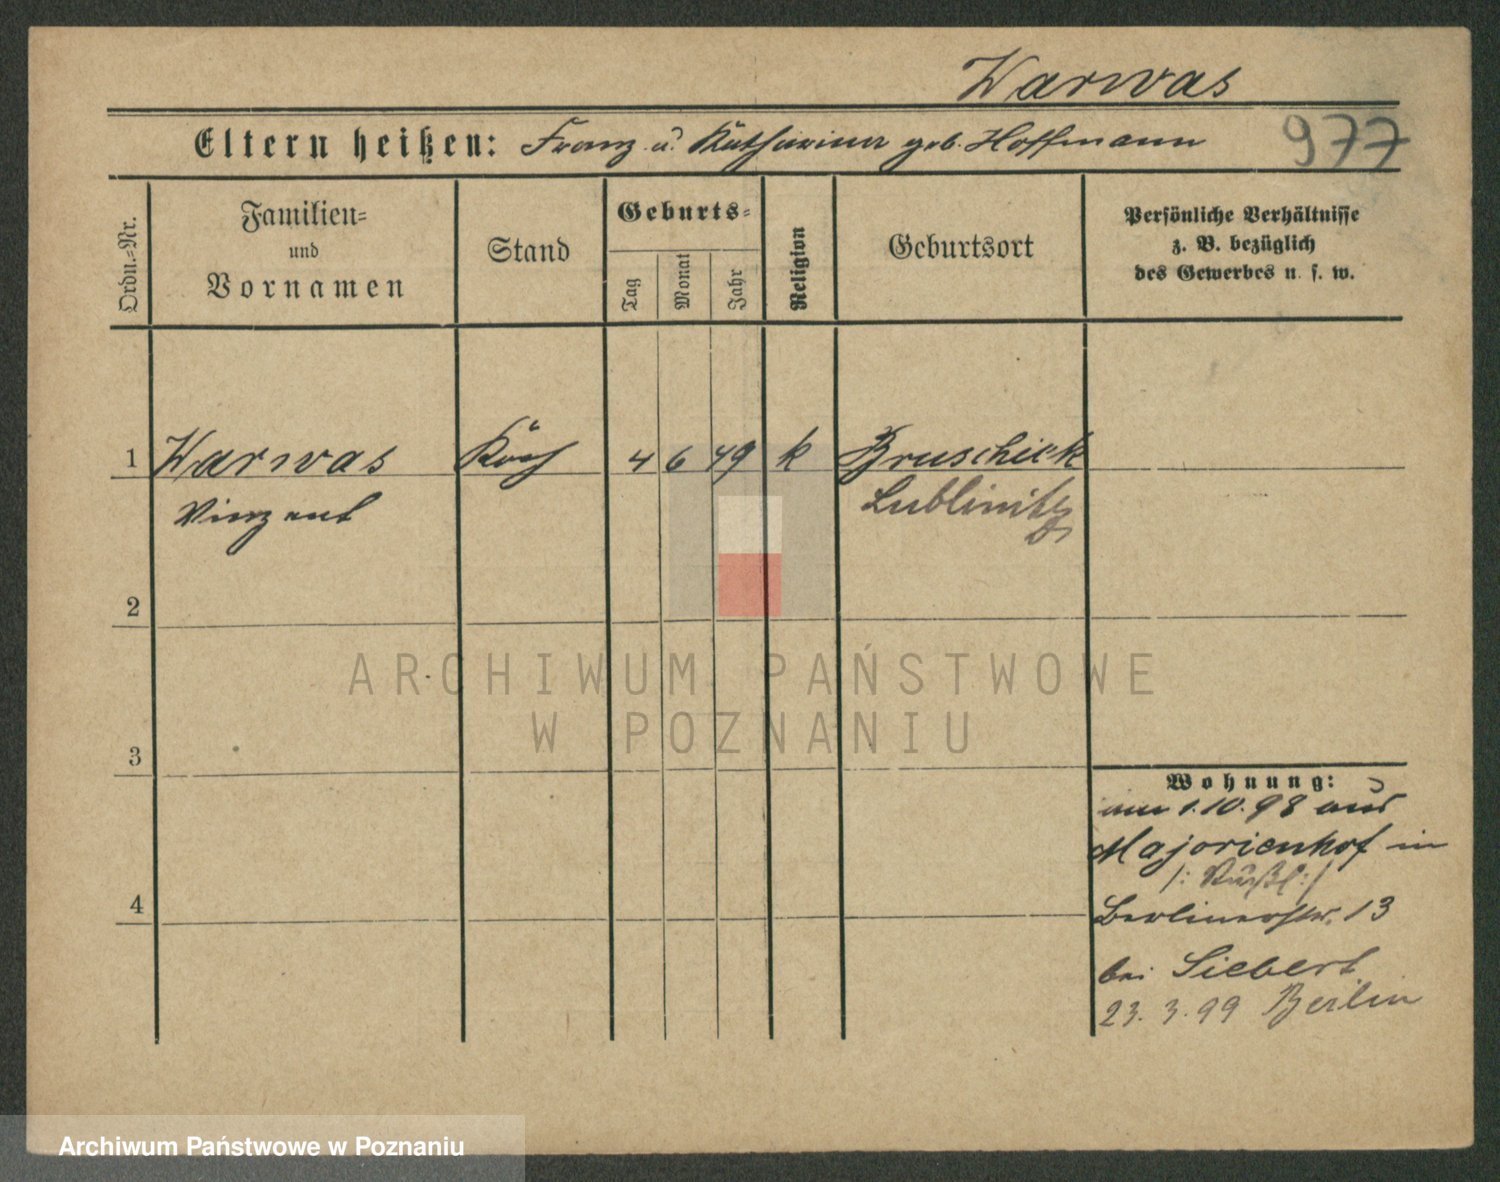 Warwas
Eltern heißen: Franz u. Katharina geb. Hoffmann 977
Ordn.-Nr.
Familien-
und
Vornamen
Stand
Geburts-
Tag
Monat
Jahr
Religion
Geburtsort
Persönliche Verhältnisse
z. B. bezüglich
des Gewerbes u. s. w.
1 Warwas Koch 4 6 49 k Bruschiek
Vinzent Lublinitz
2
3
4
Wohnung:
am 1.10.98 aus
Majorienhof in
Berlinerstr. 13
bei Siebert
23.3.99 Berlin
ARCHIWUM PAŃSTWOWE
W POZNANIU
Archiwum Państwowe w Poznaniu